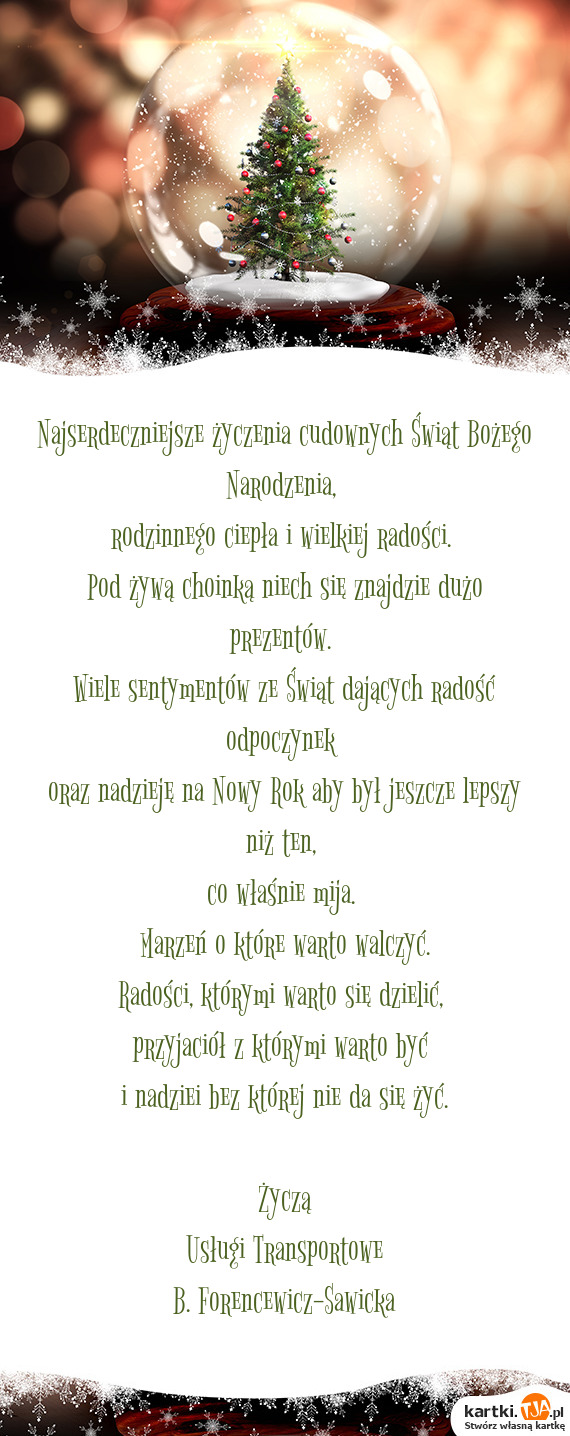 Najserdeczniejsze życzenia cudownych Świąt Bożego
Narodzenia,
rodzinnego ciepła i wielkiej radości.
Pod żywą choinką niech się znajdzie dużo
prezentów.
Wiele sentymentów ze Świąt dających radość
odpoczynek
oraz nadzieję na Nowy Rok aby był jeszcze lepszy
niż ten,
co właśnie mija.
Marzeń o które warto walczyć.
Radości, którymi warto się dzielić,
przyjaciół z którymi warto być
i nadziei bez której nie da się żyć.
Życzą
Usługi Transportowe
B. Forencewicz-Sawicka
kartki.TJA.pl
Stwórz własną kartkę